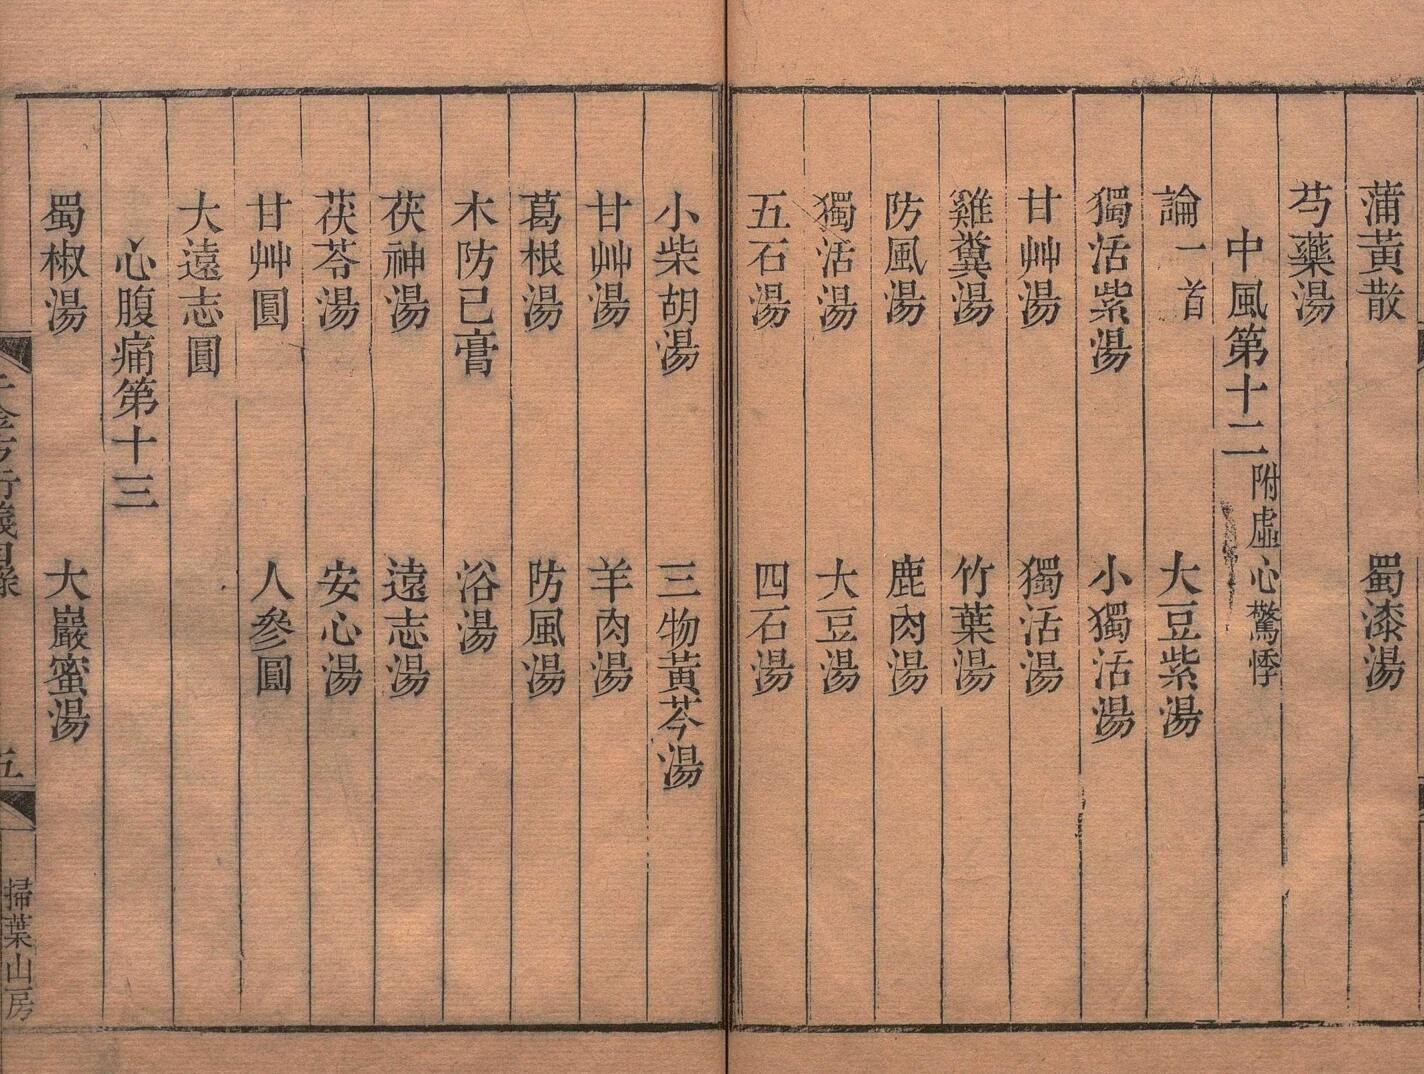 蒲黃散 蜀漆湯
芍藥湯
中風第十二 附虛心驚悸
論一首 大豆紫湯
獨活紫湯 小獨活湯
甘艸湯 獨活湯
雞糞湯 竹葉湯
防風湯 鹿肉湯
獨活湯 大豆湯
五石湯 四石湯
小柴胡湯 三物黃芩湯
甘艸湯 羊肉湯
葛根湯 防風湯
木防己膏 浴湯
茯神湯 遠志湯
茯苓湯 安心湯
甘艸圓 人參圓
大遠志圓
心腹痛第十三
蜀椒湯 大巖蜜湯
千金方衍義目錄 五 掃葉山房